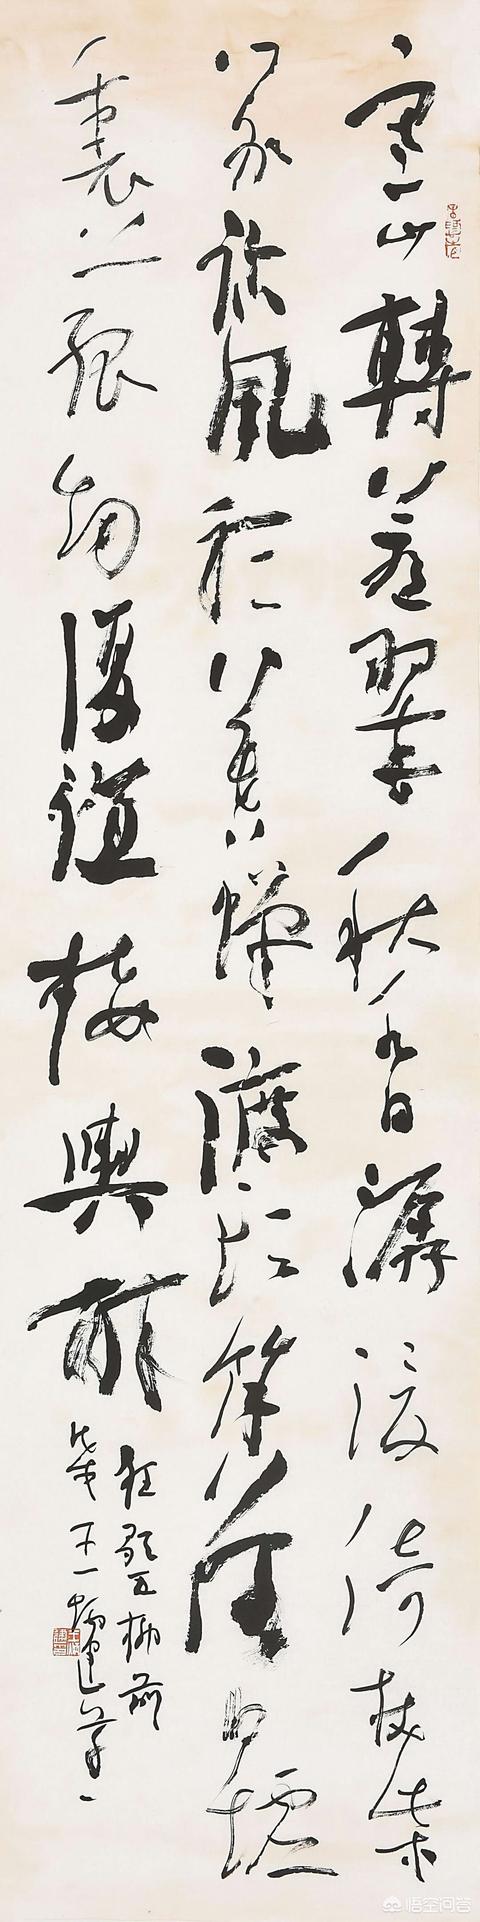 寒山轉蒼翠秋水日潺湲倚杖柴
門外臨風聽暮蟬渡頭餘落日墟
裏上孤烟復值接輿醉
狂歌五柳前
悟空问答